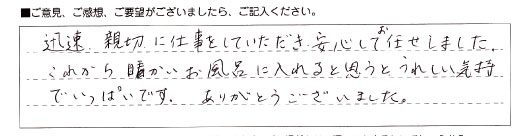 ■ご意見、ご感想、ご要望がございましたら、ご記入ください。
迅速 親切に仕事をしていただき安心してお任せしました.
これから暖かいお風呂に入れると思うとうれしい気持
でいっぱいです. ありがとうございました。